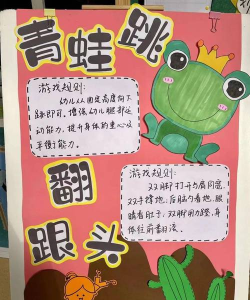 青蛙跳
游戏规则:
幼儿从固定高度向下
跳即可,增强幼儿腿部运
动能力,提升身体的重心及
平衡能力。
翻
跟头
游戏规则:
双脚打开与肩同宽,
双手撑地,后脑勺着地,眼
睛看肚子,双脚用力蹬,身
体往前翻滚。